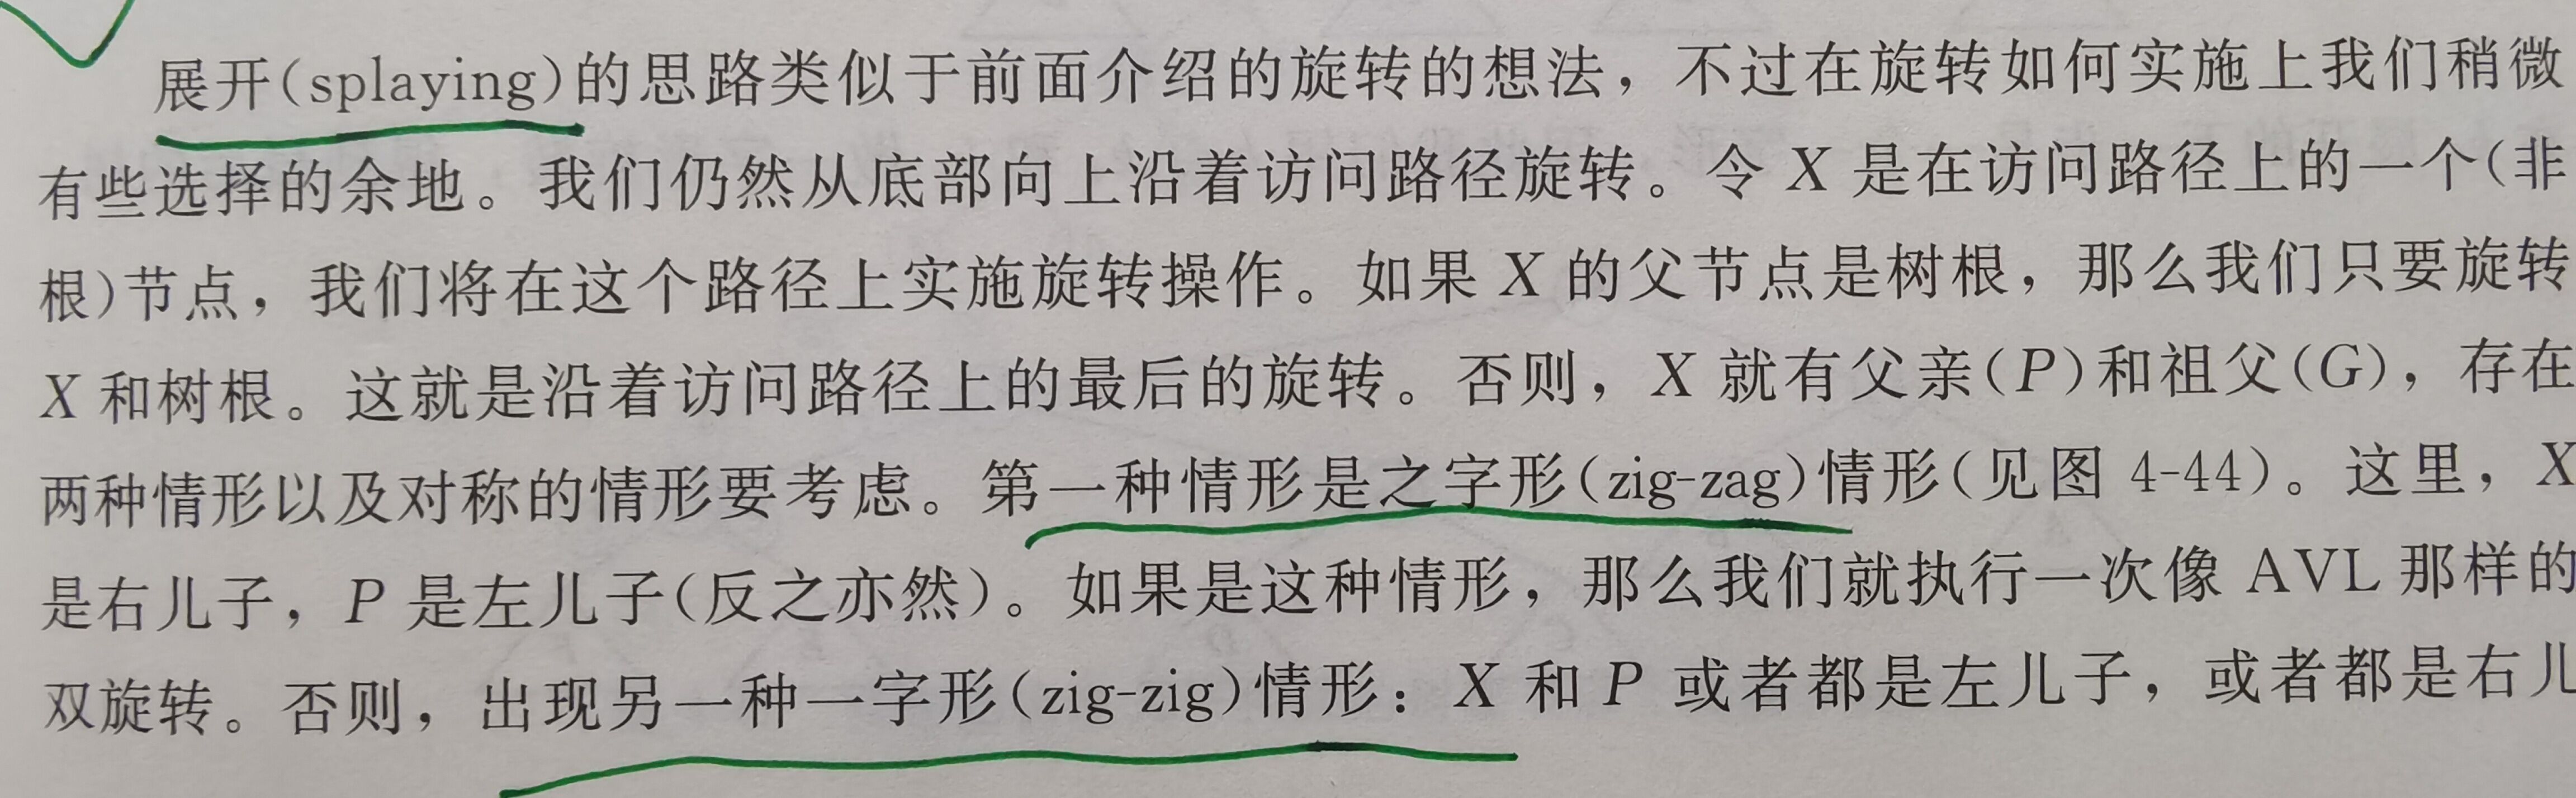 展开(splaying)的思路类似于前面介绍的旋转的想法，不过在旋转如何实施上我们稍微
有些选择的余地。我们仍然从底部向上沿着访问路径旋转。令 X 是在访问路径上的一个(非
根)节点，我们将在这个路径上实施旋转操作。如果 X 的父节点是树根，那么我们只要旋转
X 和树根。这就是沿着访问路径上的最后的旋转。否则，X 就有父亲(P)和祖父(G)，存在
两种情形以及对称的情形要考虑。第一种情形是之字形(zig-zag)情形(见图 4-44)。这里，X
是右儿子，P 是左儿子(反之亦然)。如果是这种情形，那么我们就执行一次像 AVL 那样的
双旋转。否则，出现另一种一字形(zig-zig)情形：X 和 P 或者都是左儿子，或者都是右儿